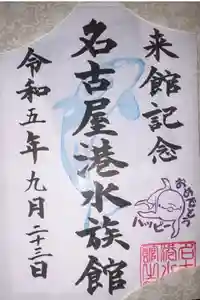 来館記念
名古屋港水族館
令和五年九月二十三日
おめでとう
ハッピー